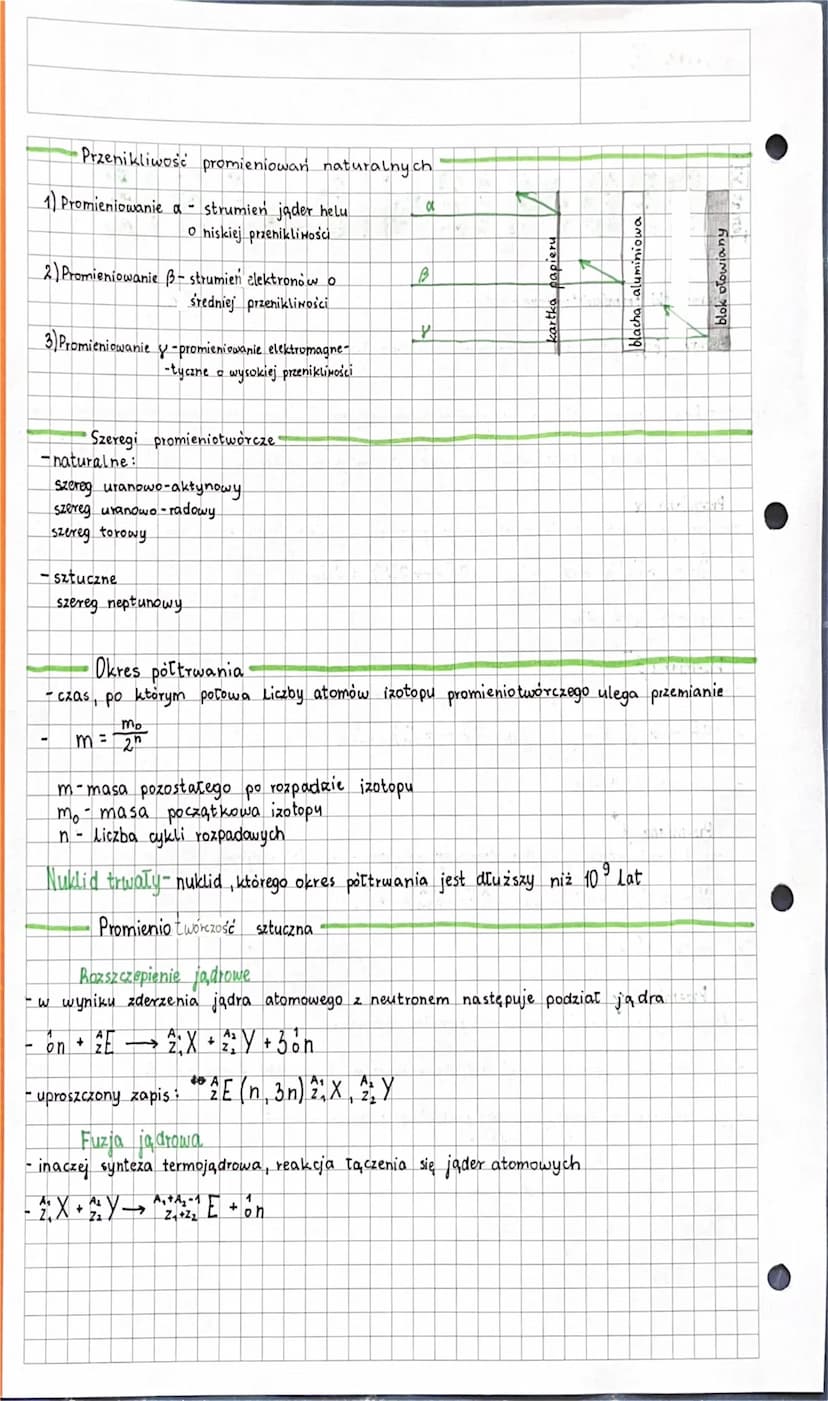 Przenikliwość promieniowań naturalnych
1) Promieniowanie α - strumień jąder helu
o niskiej przenikliwości
2) Promieniowanie β - strumień elektronów o
średniej przenikliwości
3) Promieniowanie γ - promieniowanie elektromagne-
-tyczne o wysokiej przenikliwości
α
β
γ
kartka papieru
blacha aluminiowa
blok ołowiany
Szeregi promieniotwórcze
- naturalne:
szereg uranowo-aktynowy
szereg uranowo-radowy
szereg torowy
- sztuczne
szereg neptunowy
Okres półtrwania
- czas, po którym połowa liczby atomów izotopu promieniotwórczego ulega przemianie
- m = m₀/2ⁿ
m - masa pozostałego po rozpadzie izotopu
m₀ - masa początkowa izotopu
n - liczba cykli rozpadowych
Nuklid trwały - nuklid, którego okres półtrwania jest dłuższy niż 10⁹ lat
Promieniotwórczość sztuczna
Rozszczepienie jądrowe
- w wyniku zderzenia jądra atomowego z neutronem następuje podział jądra
- ¹₀n + ᴬ_Z E → ᴬ¹_Z₁ X + ᴬ²_Z₂ Y + 3 ¹₀n
- uproszczony zapis: ᴬ_Z E (n, 3n) ᴬ¹_Z₁ X, ᴬ²_Z₂ Y
Fuzja jądrowa
- inaczej synteza termojądrowa, reakcja łączenia się jąder atomowych
- ᴬ¹_Z₁ X + ᴬ²_Z₂ Y → ᴬ¹⁺ᴬ²⁻¹_Z₁+Z₂ E + ¹₀n